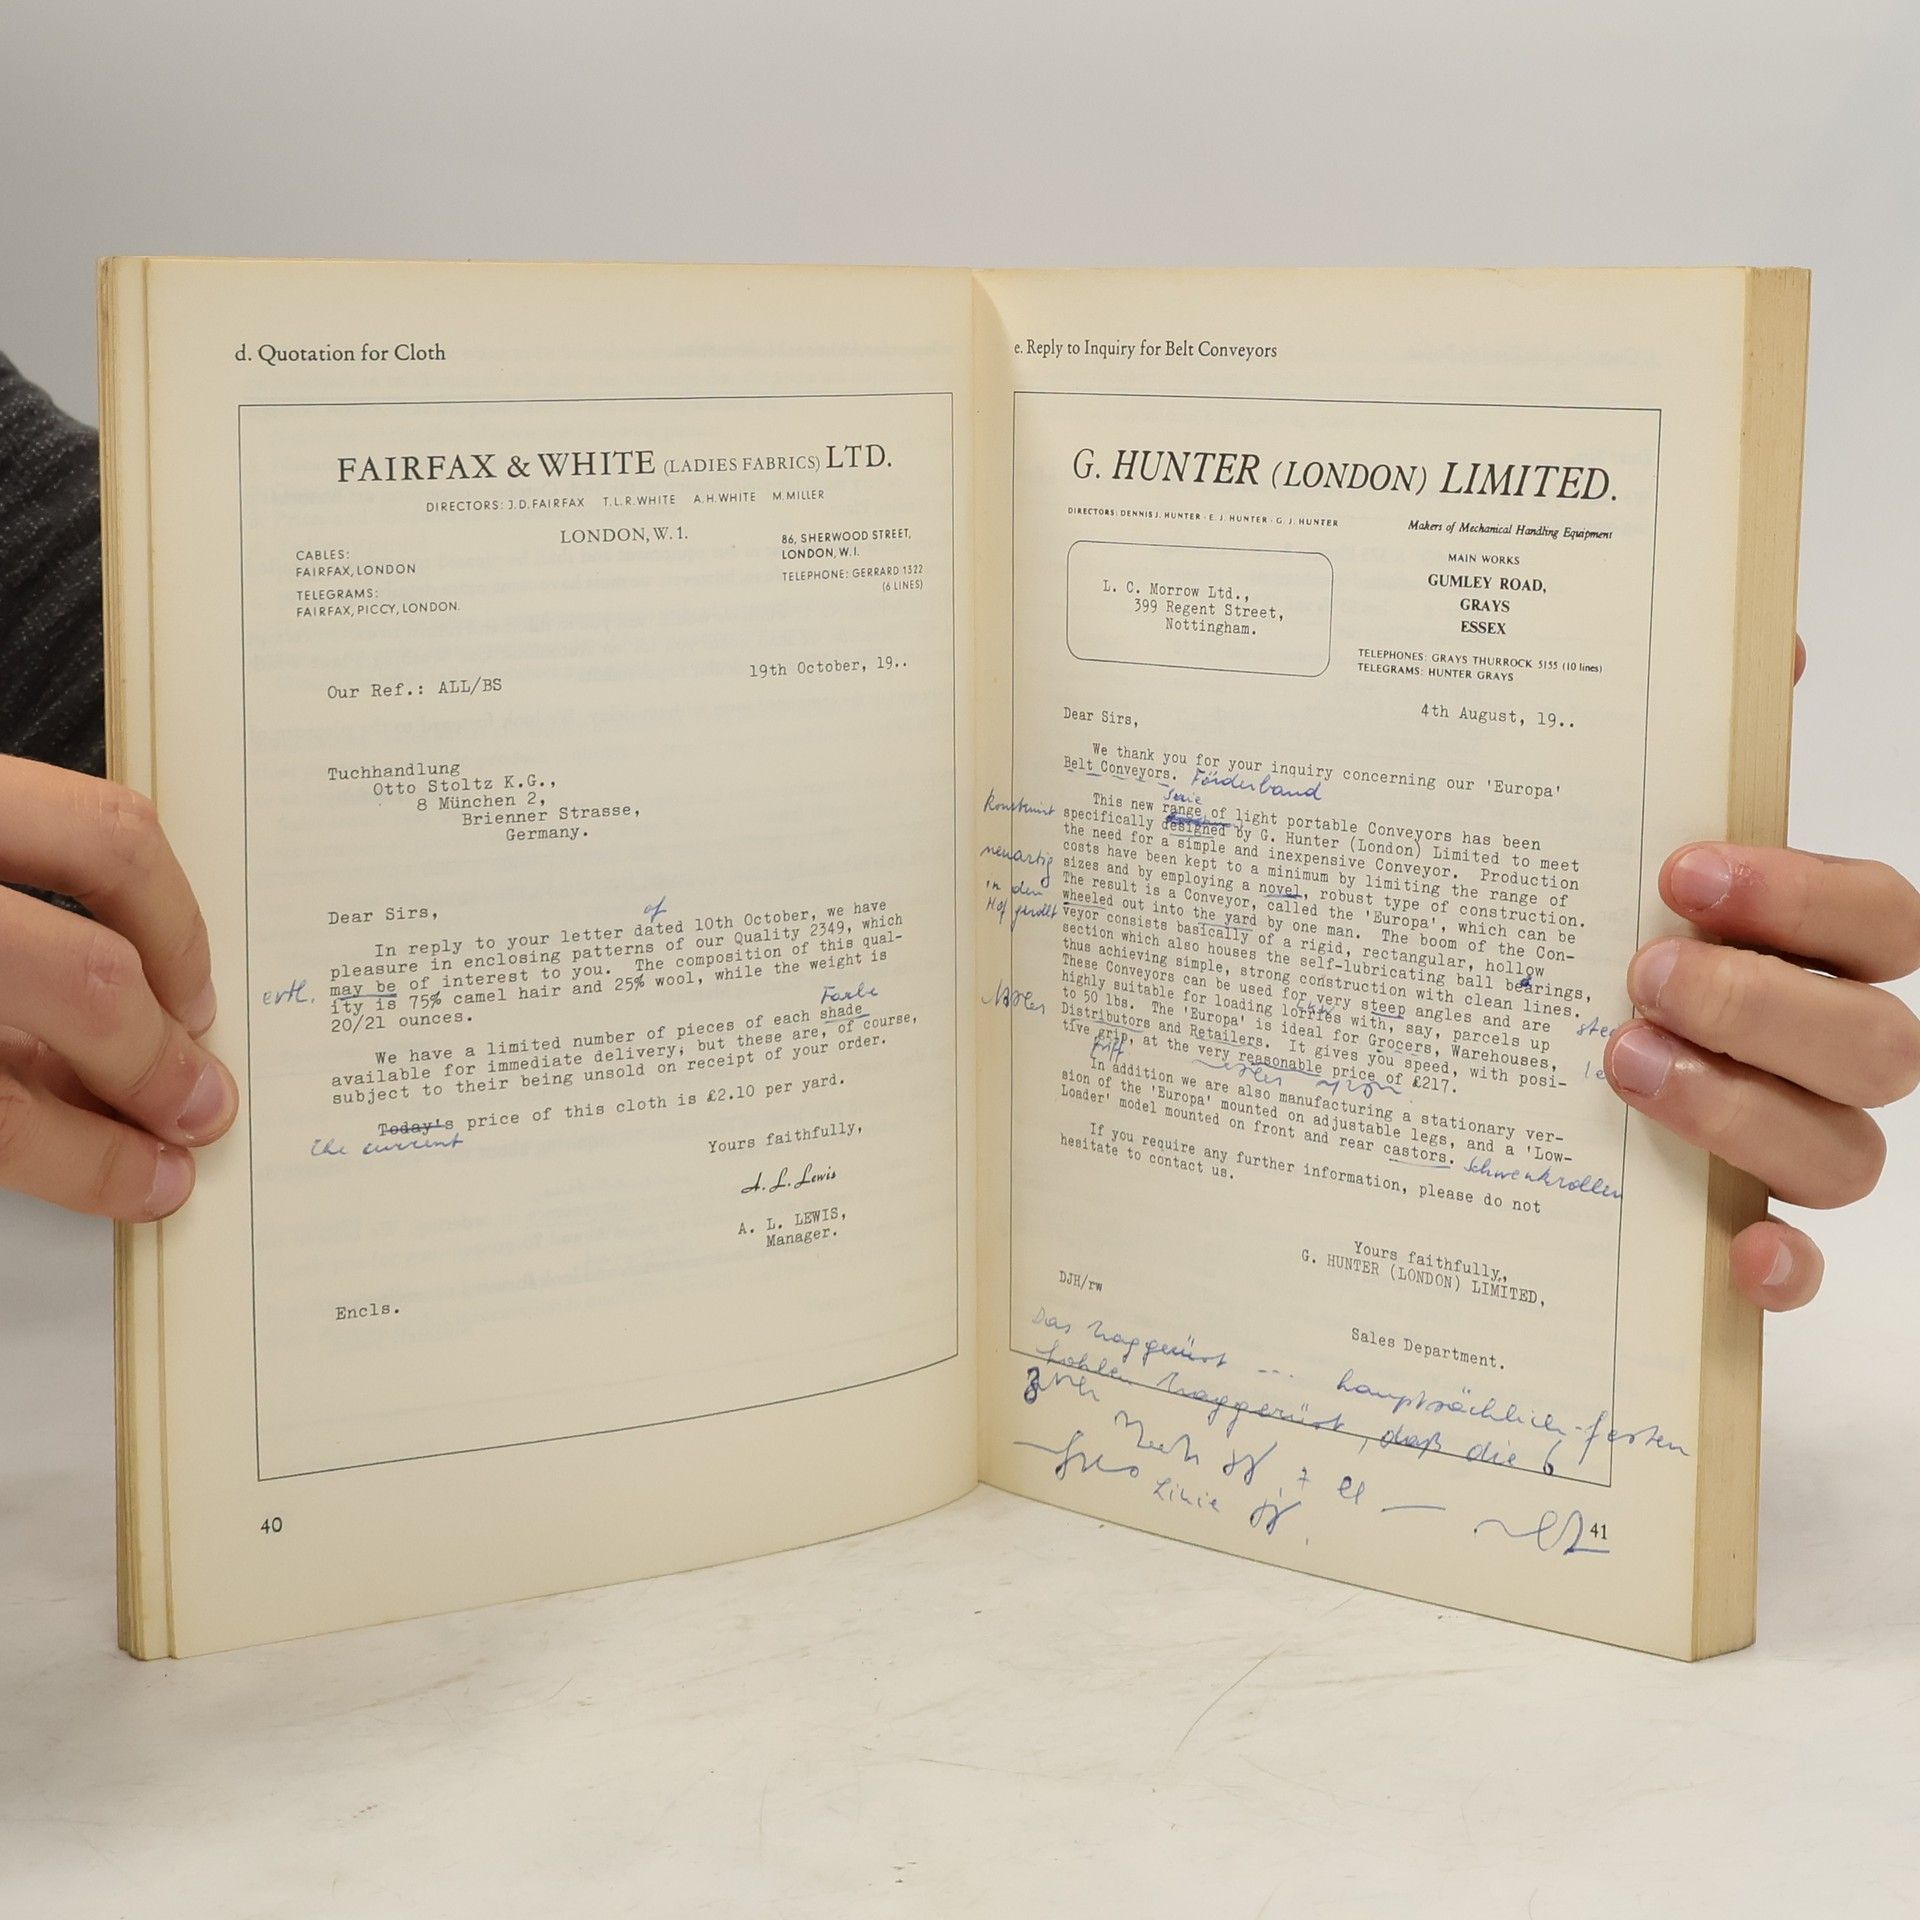 d. Quotation for Cloth
FAIRFAX & WHITE (LADIES FABRICS) LTD.
DIRECTORS: J.D. FAIRFAX T.L.R. WHITE A.H. WHITE M. MILLER
LONDON, W. 1.
CABLES:
FAIRFAX, LONDON
TELEGRAMS:
FAIRFAX, PICCY, LONDON.
86, SHERWOOD STREET,
LONDON, W.I.
TELEPHONE: GERRARD 1322
(6 LINES)
19th October, 19..
Our Ref.: ALL/BS
Tuchhandlung
Otto Stoltz K.G.,
8 München 2,
Brienner Strasse,
Germany.
Dear Sirs,
of
In reply to your letter dated 10th October, we have
pleasure in enclosing patterns of our Quality 2349, which
evtl. may be of interest to you. The composition of this qual-
ity is 75% camel hair and 25% wool, while the weight is
20/21 ounces.
Farbe
We have a limited number of pieces of each shade
available for immediate delivery; but these are, of course,
subject to their being unsold on receipt of your order.
Today's price of this cloth is £2.10 per yard.
the current
Yours faithfully,
A. L. Lewis
A. L. LEWIS,
Manager.
Encls.
40
e. Reply to Inquiry for Belt Conveyors
G. HUNTER (LONDON) LIMITED.
DIRECTORS: DENNIS J. HUNTER · E. J. HUNTER · G. J. HUNTER
Makers of Mechanical Handling Equipment
L. C. Morrow Ltd.,
399 Regent Street,
Nottingham.
MAIN WORKS
GUMLEY ROAD,
GRAYS
ESSEX
TELEPHONES: GRAYS THURROCK 5155 (10 lines)
TELEGRAMS: HUNTER GRAYS
4th August, 19..
Dear Sirs,
We thank you for your inquiry concerning our 'Europa'
Belt Conveyors. Förderband
Serie
This new range of light portable Conveyors has been
specifically designed by G. Hunter (London) Limited to meet
the need for a simple and inexpensive Conveyor. Production
costs have been kept to a minimum by limiting the range of
neuartig sizes and by employing a novel, robust type of construction.
in den The result is a Conveyor, called the 'Europa', which can be
Hof gerollt wheeled out into the yard by one man. The boom of the Con-
veyor consists basically of a rigid, rectangular, hollow
section which also houses the self-lubricating ball bearings,
thus achieving simple, strong construction with clean lines.
These Conveyors can be used for very steep angles and are
highly suitable for loading lorries with, say, parcels up
to 50 lbs. The 'Europa' is ideal for Grocers, Warehouses,
Distributors and Retailers. It gives you speed, with posi-
tive grip, at the very reasonable price of £217.
Griff
In addition we are also manufacturing a stationary ver-
sion of the 'Europa' mounted on adjustable legs, and a 'Low-
Loader' model mounted on front and rear castors. Schwenkrollen
If you require any further information, please do not
hesitate to contact us.
Yours faithfully,
G. HUNTER (LONDON) LIMITED,
DJH/rw
Sales Department.
Das Traggerüst --- hauptsächlich festen
hohlen Traggerüst, daß die
Linie
41